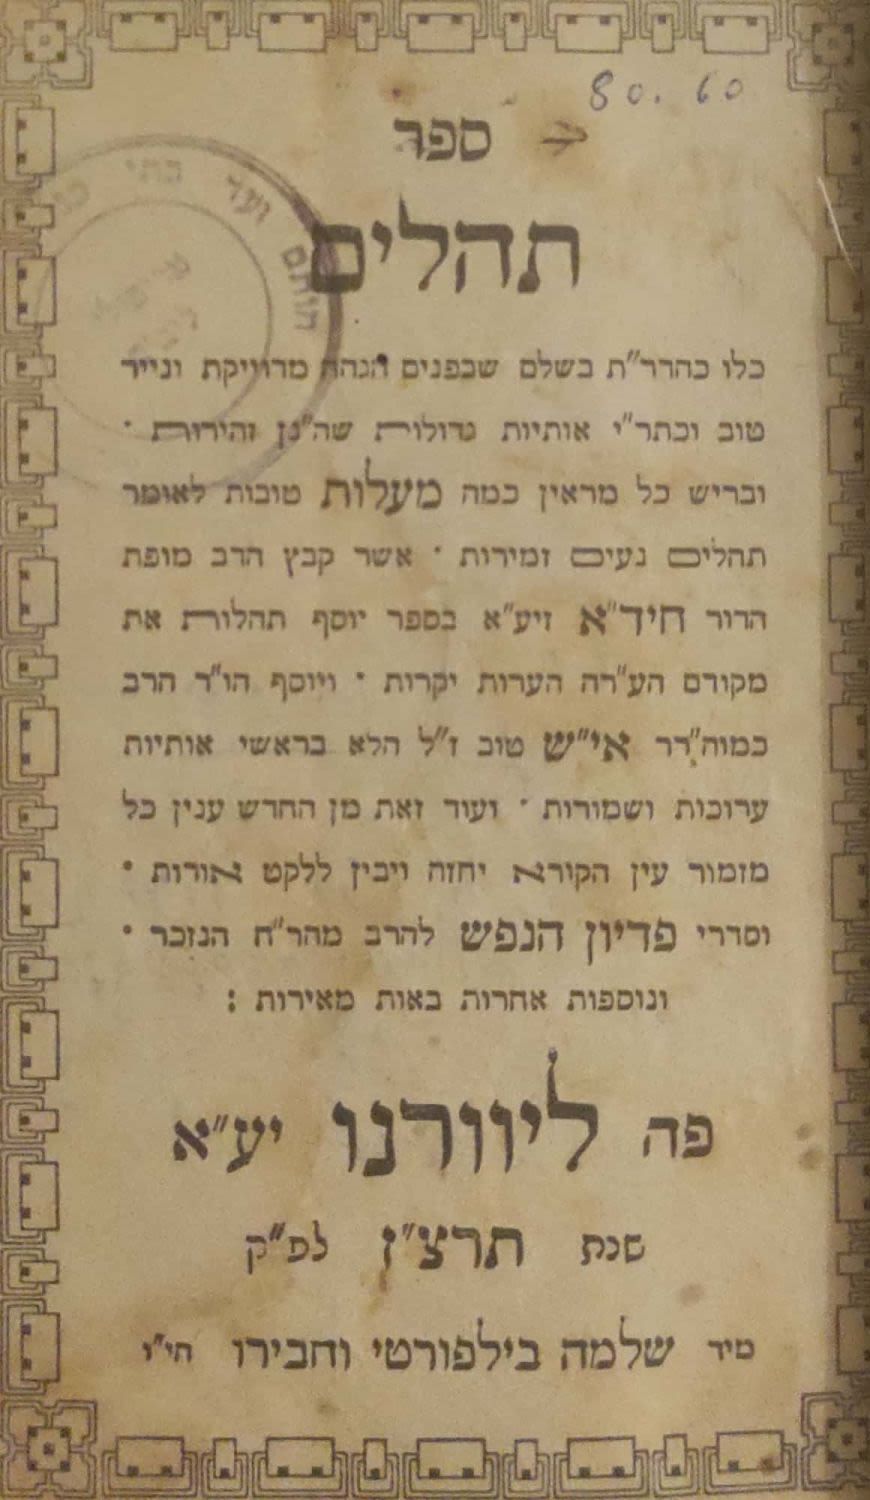 80. 60
ספר
תהלים
כלו כהדר״ת בשלם שבפנים הגהה מדוייקת ונייר
טוב וכתר״י אותיות גדולות שה״גן זהירות ·
ובריש כל מראין כמה מעלות טובות לאומר
תהלים נעים זמירות · אשר קבץ הרב מופת
הדור חיד״א זיע״א בספר יוסף תהלות את
מקודם הע״רה הערות יקרות · ויוסף הו״ד הרב
כמוה״רר אי״ש טוב ז״ל הלא בראשי אותיות
ערוכות ושמורות · ועוד זאת מן החדש ענין כל
מזמור עין הקורא יחזה ויבין ללקט אורות ·
וסדרי פדיון הנפש להרב מהר״ח הנזכר ·
ונוספות אחרות באות מאירות :
פה ליוורנו יע״א
שנת תרצ״ן לפ״ק
מיד שלמה בילפורטי וחבירו הי״ו
חותם ועד בתי